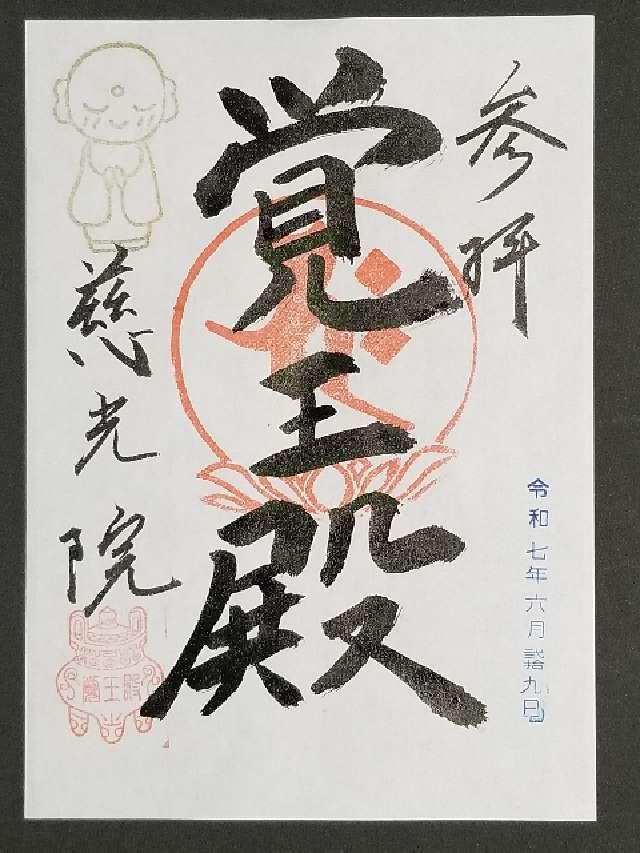 参拝
令和七年六月拾九日
覚王殿
慈光院
覺王殿